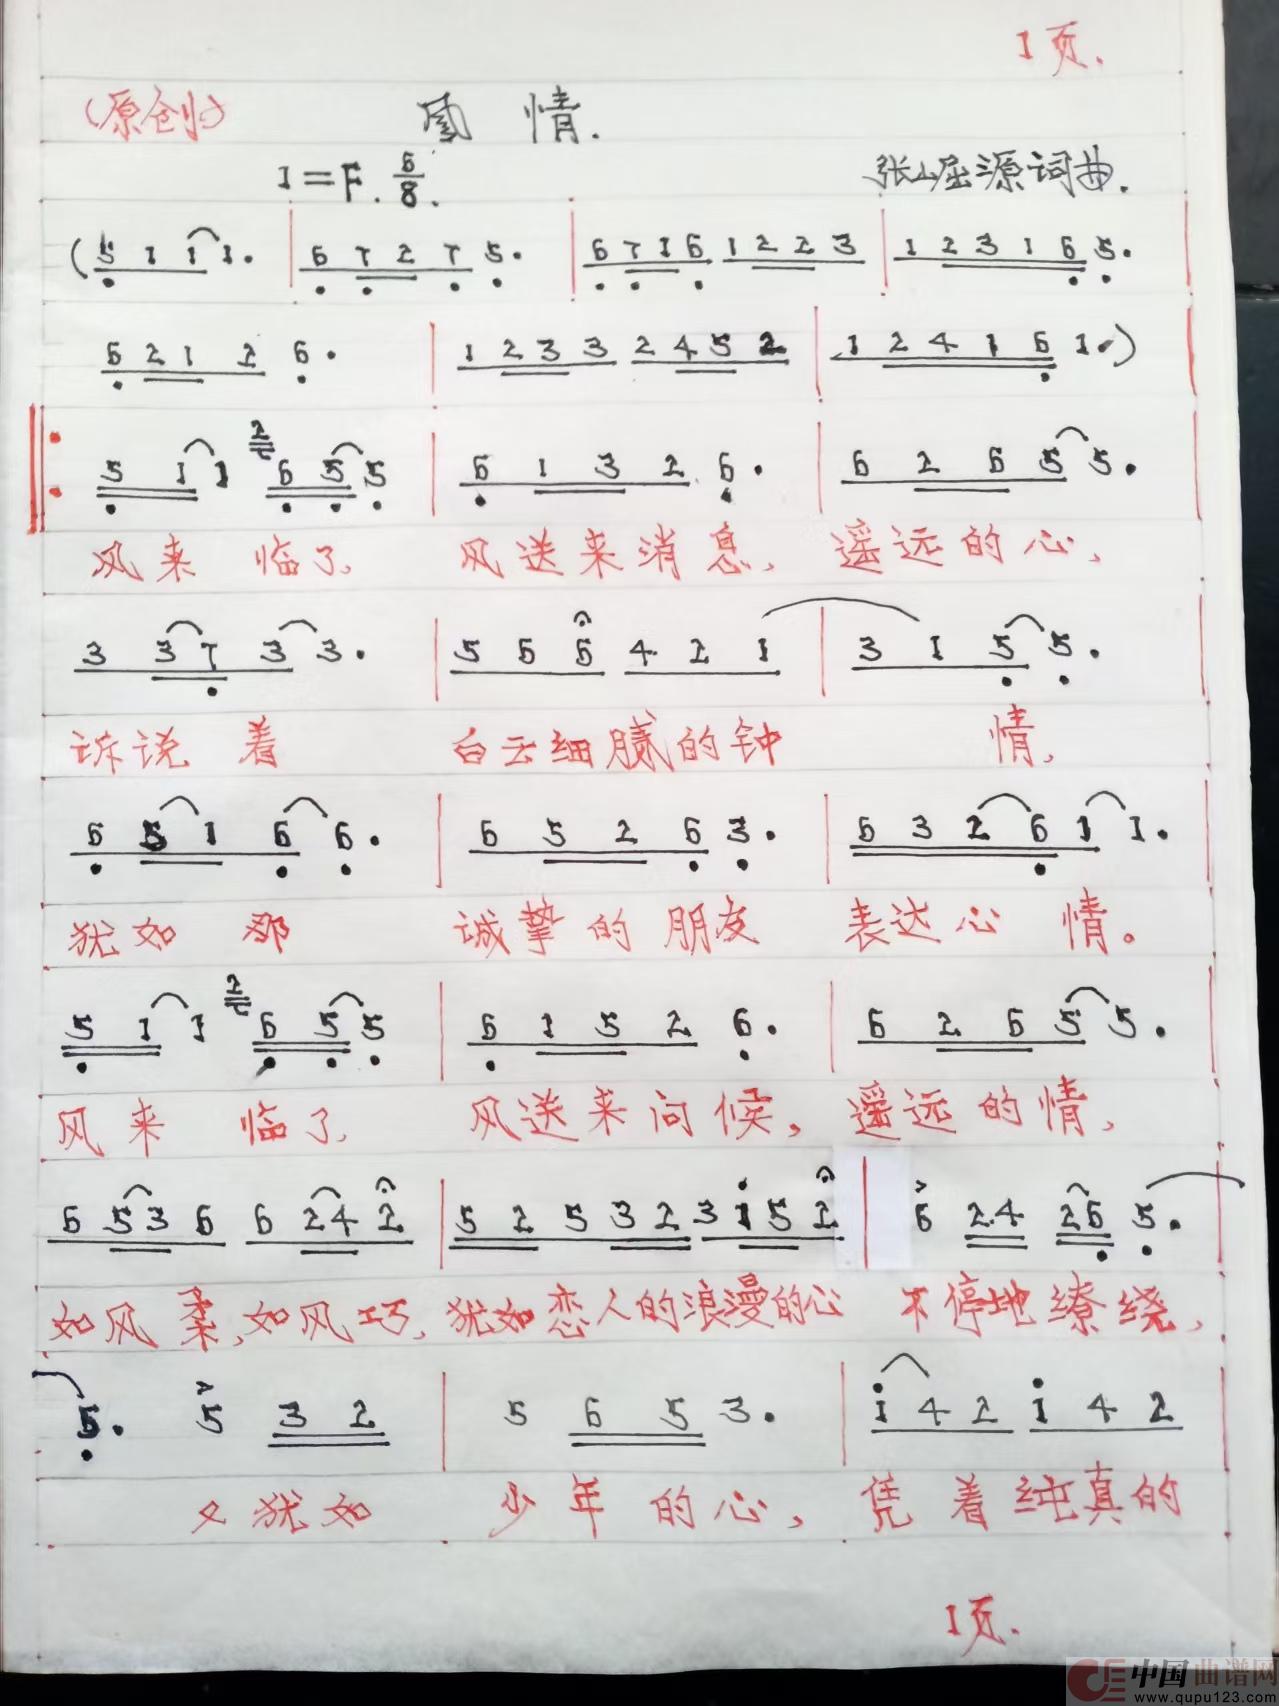 1页.
(原创)
风 情.
1=F. 6/8.
张山屈源词曲.
(5 1 1 1. | 6 7 2 7 5. | 6 7 1 6 1 2 2 3 | 1 2 3 1 6 5.
6 2 1 2 6. | 1 2 3 3 2 4 5 2 | 1 2 4 1 6 1.)
5 1 1 2 6 5 5 | 6 1 3 2 6. | 6 2 6 5 5.
风来 临了, 风送来消息, 遥远的心,
3 3 7 3 3. | 5 5 5 4 2 1 | 3 1 5 5.
诉说 着 白云细腻的钟 情,
6 5 1 6 6. | 6 5 2 6 3. | 6 3 2 6 1 1.
犹如 那 诚挚的朋友 表达心 情。
5 1 1 2 6 5 5 | 6 1 5 2 6. | 6 2 6 5 5.
风来 临了, 风送来问候, 遥远的情,
6 5 3 6 6 2 4 2 | 5 2 5 3 2 3 1 5 2 | 6 2.4 2 6 5.
如风柔,如风巧, 犹如恋人的浪漫的心 不停地缭绕,
5. 5 3 2 | 5 6 5 3. | 1 4 2 1 4 2
又犹如 少年的心, 凭着纯真的
1页.
中国曲谱网
www.qupu123.com